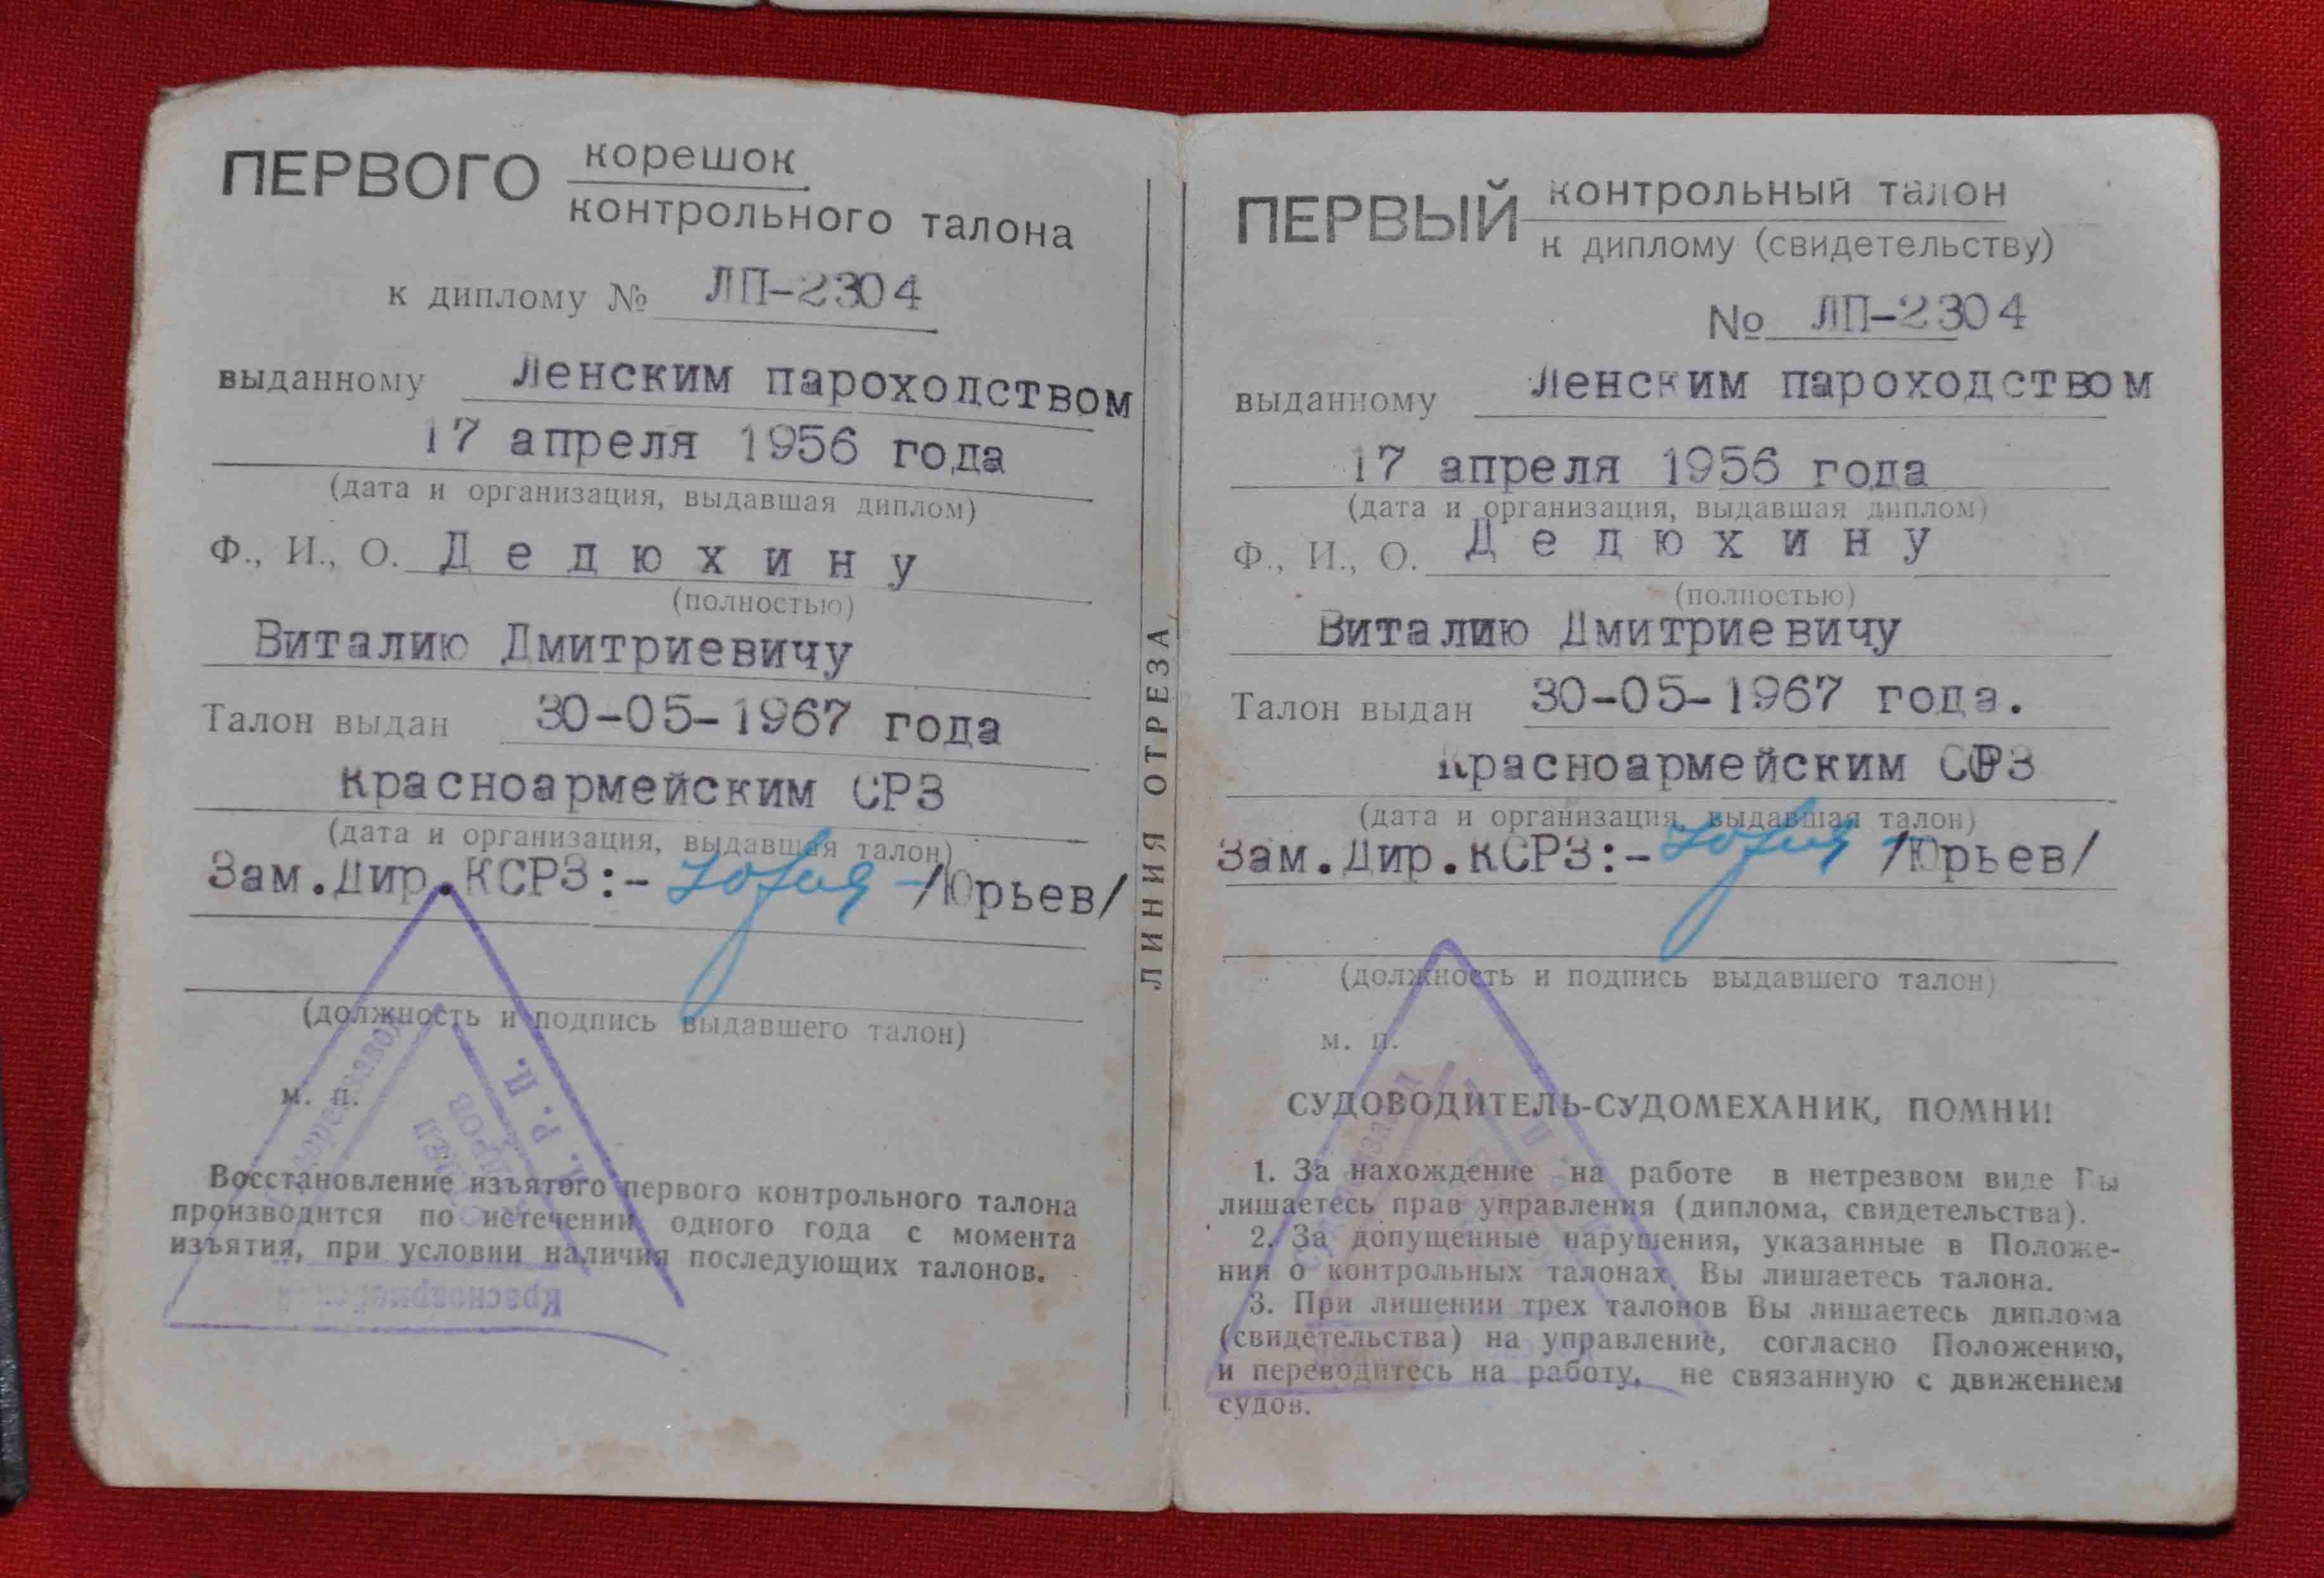 ПЕРВОГО корешок
контрольного талона
к диплому № ЛП-2304
выданному Ленским пароходством
17 апреля 1956 года
(дата и организация, выдавшая диплом)
Ф., И., О. Дедюхину
(полностью)
Виталию Дмитриевичу
Талон выдан 30-05-1967 года
Красноармейским СРЗ
(дата и организация, выдавшая талон)
Зам.Дир.КСРЗ:- /Юрьев/
(должность и подпись выдавшего талон)
м. п.
Восстановление изъятого первого контрольного талона
производится по истечении одного года с момента
изъятия, при условии наличия последующих талонов.
Красноармейский
ЛИНИЯ ОТРЕЗА
ПЕРВЫЙ контрольный талон
к диплому (свидетельству)
№ ЛП-2304
выданному Ленским пароходством
17 апреля 1956 года
(дата и организация, выдавшая диплом)
Ф., И., О. Дедюхину
(полностью)
Виталию Дмитриевичу
Талон выдан 30-05-1967 года.
Красноармейским СРЗ
(дата и организация, выдавшая талон)
Зам.Дир.КСРЗ:- /Юрьев/
(должность и подпись выдавшего талон)
м. п.
СУДОВОДИТЕЛЬ-СУДОМЕХАНИК, ПОМНИ!
1. За нахождение на работе в нетрезвом виде Вы
лишаетесь прав управления (диплома, свидетельства).
2. За допущенные нарушения, указанные в Положе-
нии о контрольных талонах, Вы лишаетесь талона.
3. При лишении трех талонов Вы лишаетесь диплома
(свидетельства) на управление, согласно Положению,
и переводитесь на работу, не связанную с движением
судов.